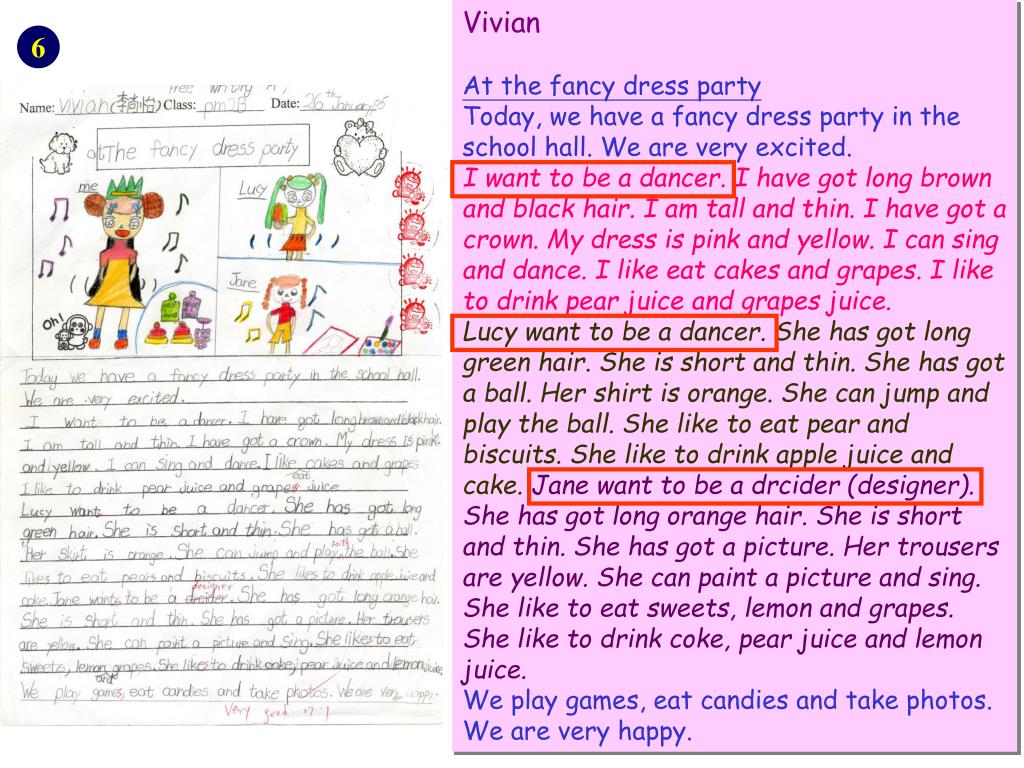 6
free writing
Name: Vivian (李尚怡) Class: pm2B Date: 26th January, 05
at The fancy dress party
me
Lucy
Jane
Oh!
Today we have a fancy dress party in the school hall.
We are very excited.
I want to be a dancer. I have got long brown and black hair.
I am tall and thin. I have got a crown. My dress is pink
and yellow. I can sing and dance. I like cakes and grapes
eat
I like to drink pear juice and grapes juice
Lucy want to be a dancer. She has got long
green hair. She is short and thin. She has got a ball.
Her skirt is orange. She can jump and play the ball. She
with
likes to eat pears and biscuits. She likes to drink apple juice and
designer
coke. Jane wants to be a drcider. She has got long orange hair.
She is short and thin. She has got a picture. Her trousers
are yellow. She can paint a picture and sing. She likes to eat
sweets, lemon grapes. She likes to drink coke, pear juice and lemon juice.
and
We play games, eat candies and take photos. We are very happy.
Very good
Vivian
At the fancy dress party
Today, we have a fancy dress party in the
school hall. We are very excited.
I want to be a dancer. I have got long brown
and black hair. I am tall and thin. I have got a
crown. My dress is pink and yellow. I can sing
and dance. I like eat cakes and grapes. I like
to drink pear juice and grapes juice.
Lucy want to be a dancer. She has got long
green hair. She is short and thin. She has got
a ball. Her shirt is orange. She can jump and
play the ball. She like to eat pear and
biscuits. She like to drink apple juice and
cake. Jane want to be a drcider (designer).
She has got long orange hair. She is short
and thin. She has got a picture. Her trousers
are yellow. She can paint a picture and sing.
She like to eat sweets, lemon and grapes.
She like to drink coke, pear juice and lemon
juice.
We play games, eat candies and take photos.
We are very happy.